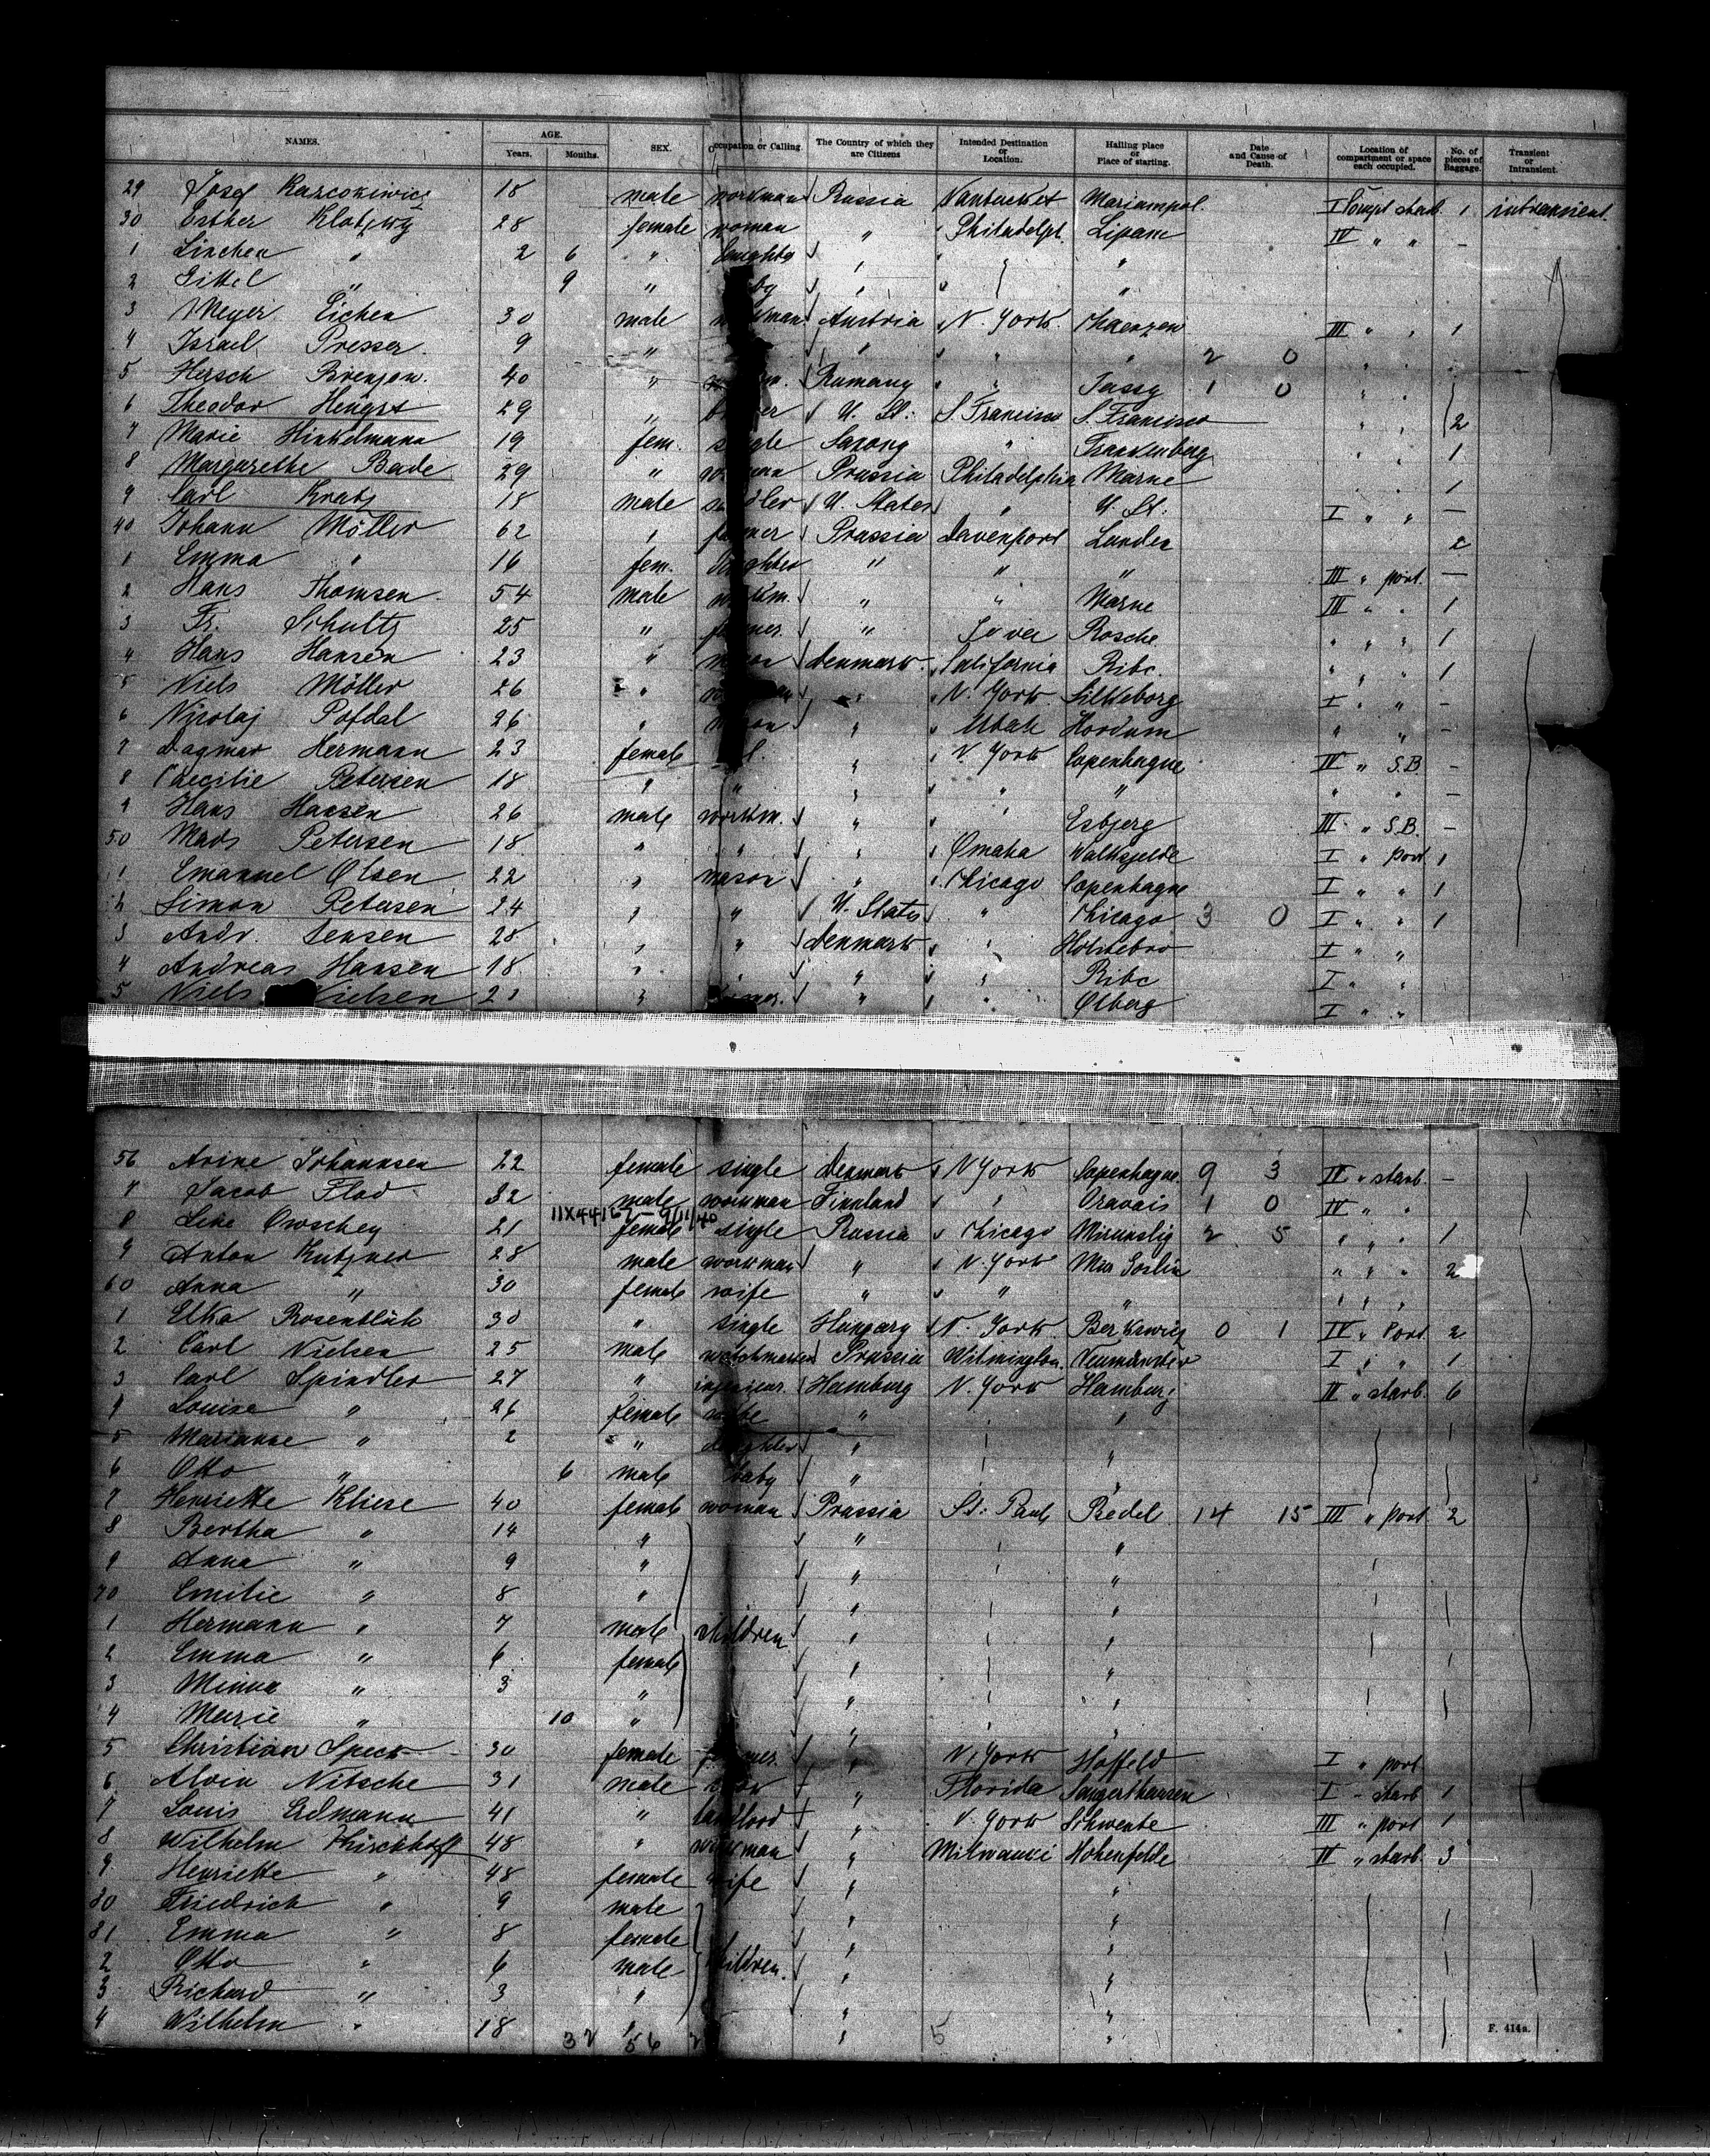 NAMES. AGE. Years. Months. SEX. Occupation or Calling. The Country of which they are Citizens Intended Destination or Location. Hailing place or Place of starting. Date and Cause of Death. Location of compartment or space each occupied. No. of pieces of Baggage. Transient or Intransient.
29 Josef 18 male workman Russia Nantucket Mariampol. I Compt starb. 1 intransient.
30 Esther 28 female woman " Philadelph. IV " " -
1 Linchen " 2 6 " "
2 Gittel " 9 " "
3 Meyer Eichen 30 male Austria N. York III " " 1
4 Israel Presser 9 " " " " 2 0
5 Hersch 40 " Rumany " Jassy 1 0
6 Theodor Hengst 29 " U. St. S. Francisco S. Francisco 2
7 Marie Hinkelmann 19 fem. single Saxony " Frankenberg 1
8 Margarethe Bade 29 " Prussia Philadelphia Marne 1
9 Carl Kratz 18 male U. States " U. St. I " " -
40 Johann Möller 62 " farmer Prussia Davenport Lunden 2
1 Emma " 16 fem. daughter " " " III " port. -
2 Hans Thomsen 54 male workm. " " Marne III " " 1
3 Fr. Schultz 25 " farmer. " Rosche " " " 1
4 Hans Hansen 23 " Denmark California Ribe. " " " 1
5 Niels Möller 26 " " N. York Silkeborg I " " -
6 Nicolaj Pofdal 26 " " Utah Hordum " " -
7 Dagmar Hermann 23 female " N. York Copenhague IV " S.B -
8 Caecilie Petersen 18 " " " " " " " -
9 Hans Hansen 26 male workm. " " Esbjerg III " S.B. -
50 Mads Petersen 18 " " " Omaha I " port 1
1 Emanuel Olsen 22 " mason " Chicago Copenhague I " " 1
2 Simon Petersen 24 " " U. States " Chicago 3 0 I " " 1
3 Andr. Jensen 28 " " Denmark " Holstebro I " "
4 Andreas Hansen 18 " " " " Ribe I " "
5 Niels Nielsen 21 " " " Ølberg I " "
56 Arine Johannsen 22 female single Denmark N York Copenhague. 9 3 IV " starb. -
7 Jacob Flod 32 male workman Finnland " Oravais 1 0 IV " "
11X44167 - 9/11/40
8 Line Owschey 21 female single Russia Chicago 2 5 " " " 1
9 Anton Kutzner 28 male workman " N. York " " " 2
60 Anna " 30 female wife " " " " " "
1 Elka Rosenblüh 30 " single Hungary N. York 0 1 IV " Port 2
2 Carl Nielsen 25 male Prussia Wilmington. Neumünster I " " 1
3 Carl Spindler 27 " Hamburg N. York Hamburg II " starb. 6
4 Louise " 26 female wife " " "
5 Marianne " 2 " daughter " " "
6 Otto " 6 male baby " " "
7 Henriette Kliese 40 female woman Prussia St. Paul Redel 14 15 III " port. 2
8 Bertha " 14 " " " "
9 Anna " 9 " " " "
70 Emilie " 8 " " " "
1 Hermann " 7 male children " " "
2 Emma " 6 female " " "
3 Minna " 3 " " " "
4 Marie " 10 " " " "
5 Christian Speck 30 female farmer. " N. York Hoffeld I " port
6 Alvin Nitsche 31 male " Florida Sangerhausen I " starb 1
7 Louis Erdmann 41 " landlord " N. York Schwente III " port 1
8 Wilhelm Kirchhoff 48 " workman " Milwauki Hohenfelde IV " starb. 3
9 Henriette " 48 female wife " "
80 Friedrich " 9 male " "
81 Emma " 8 female " "
2 Otto " 6 male children. " "
3 Richard " 3 " " "
4 Wilhelm " 18 " " "
32 56 5
F. 414a.